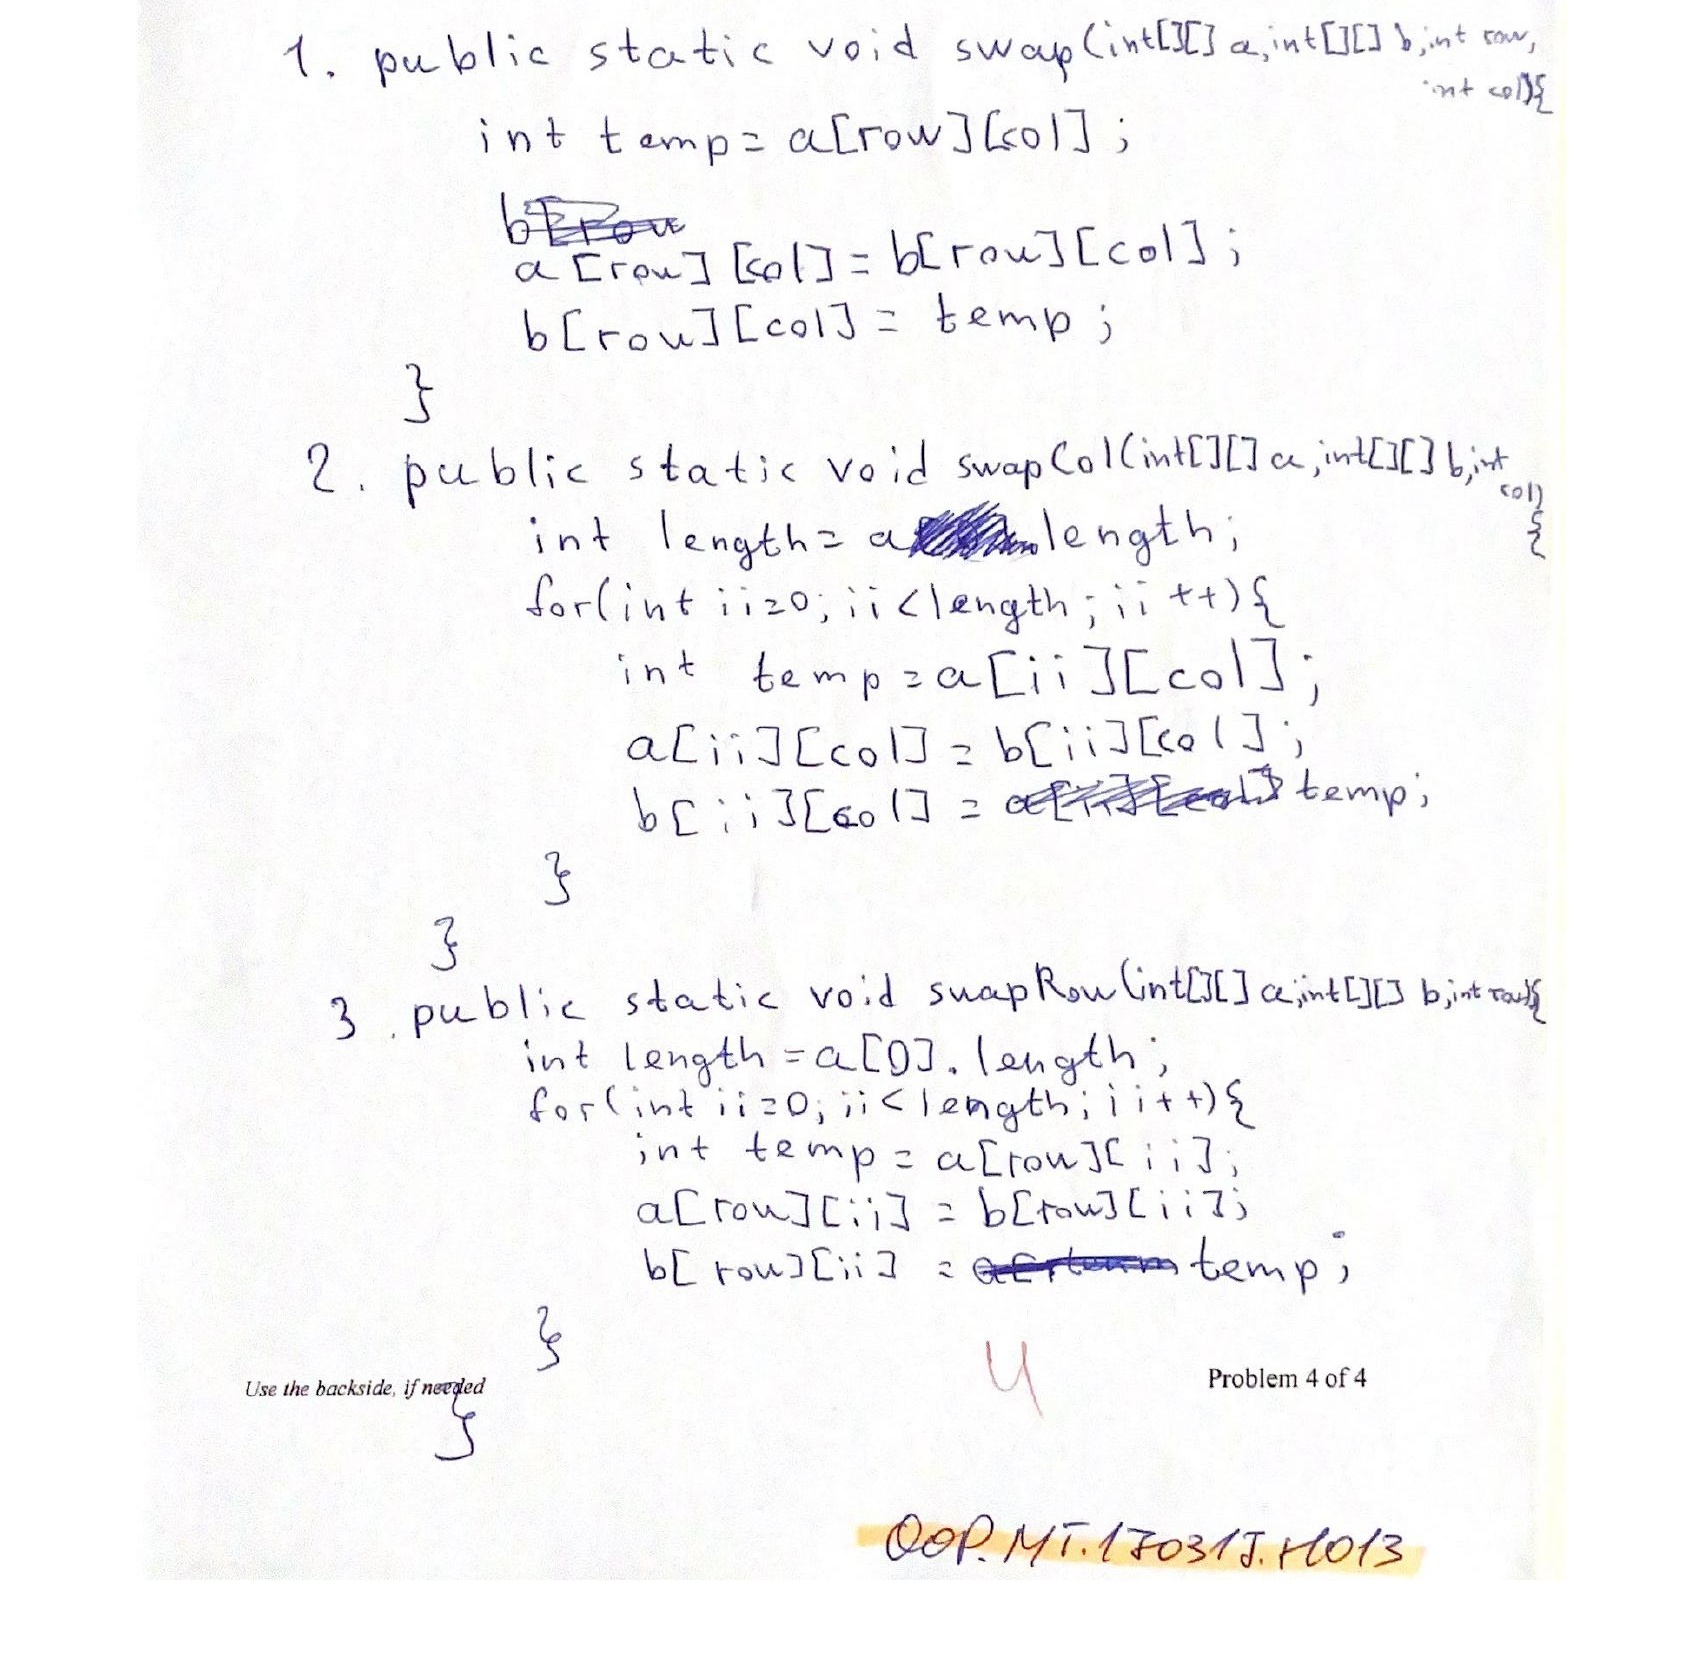 1. public static void swap(int[][] a,int[][] b,int row,
int col){
int temp= a[row][col];
a[row][col]= b[row][col];
b[row][col]= temp;
}
2. public static void swapCol(int[][] a,int[][] b,int
col)
{
int length= a.length;
for(int ii=0;ii<length;ii++){
int temp=a[ii][col];
a[ii][col]=b[ii][col];
b[ii][col]= temp;
}
}
3. public static void swapRow(int[][] a,int[][] b,int row){
int length=a[0].length;
for(int ii=0;ii<length;ii++){
int temp=a[row][ii];
a[row][ii]= b[row][ii];
b[row][ii]= temp;
}
4
Use the backside, if needed
Problem 4 of 4
}
OOP.MT.170317.H013